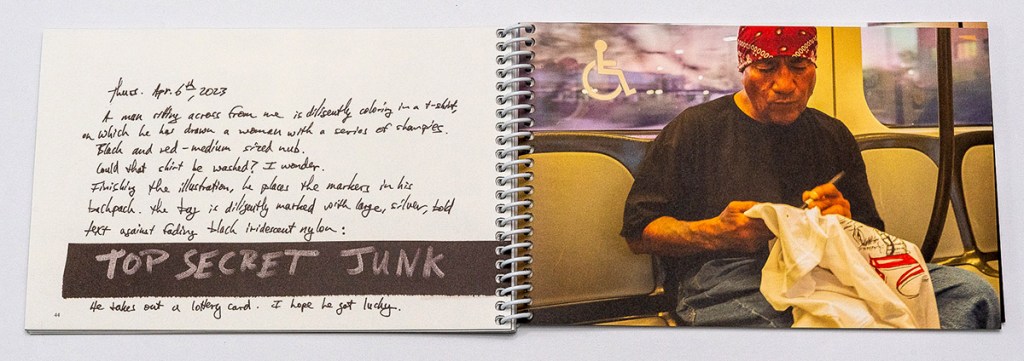 Thurs. Apr. 6th, 2023
A man sitting across from me is diligently coloring in a t-shirt,
on which he has drawn a woman with a series of sharpies.
Black and red-medium sized nub.
Could that shirt be washed? I wonder.
Finishing the illustration, he places the markers in his
backpack. The bag is diligently marked with large, silver, bold
text against fading black iridescent nylon:
TOP SECRET JUNK
He takes out a lottery card. I hope he got lucky.
44